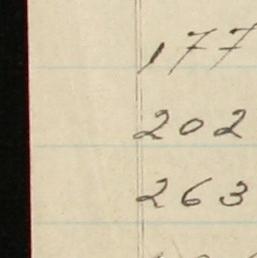 177
202
263